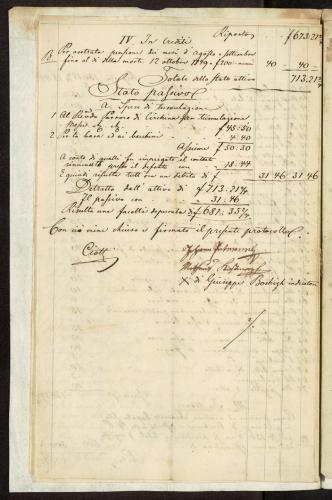 IV. In Crediti Riporto f 673.21
B Per arretrata pensione dei mesi d'Agosto e Settembre
fino al dì della morte 12 ottobre 1879 f 200 40 — 40 —
Totale dello stato attivo 713.21
Stato passivo
a. Spese di tumulazione
1 Al Parroco di per tumulazione
f 45:50
2 Per la bara ed ai becchini " 4:40
Assieme f 50:30
A conto di quelli fu impiegato il contante
presso il defunto 18:44
E quindi risulta tutt'ora un debito di f 31 46 31 46
Detratto dall'attivo di f 713.21
Il passivo con 31:46
Risulta una facoltà depurata di f 681:35
Con ciò viene chiuso e firmato il presente protocollo.
Johann
X di Giuseppe indicatore